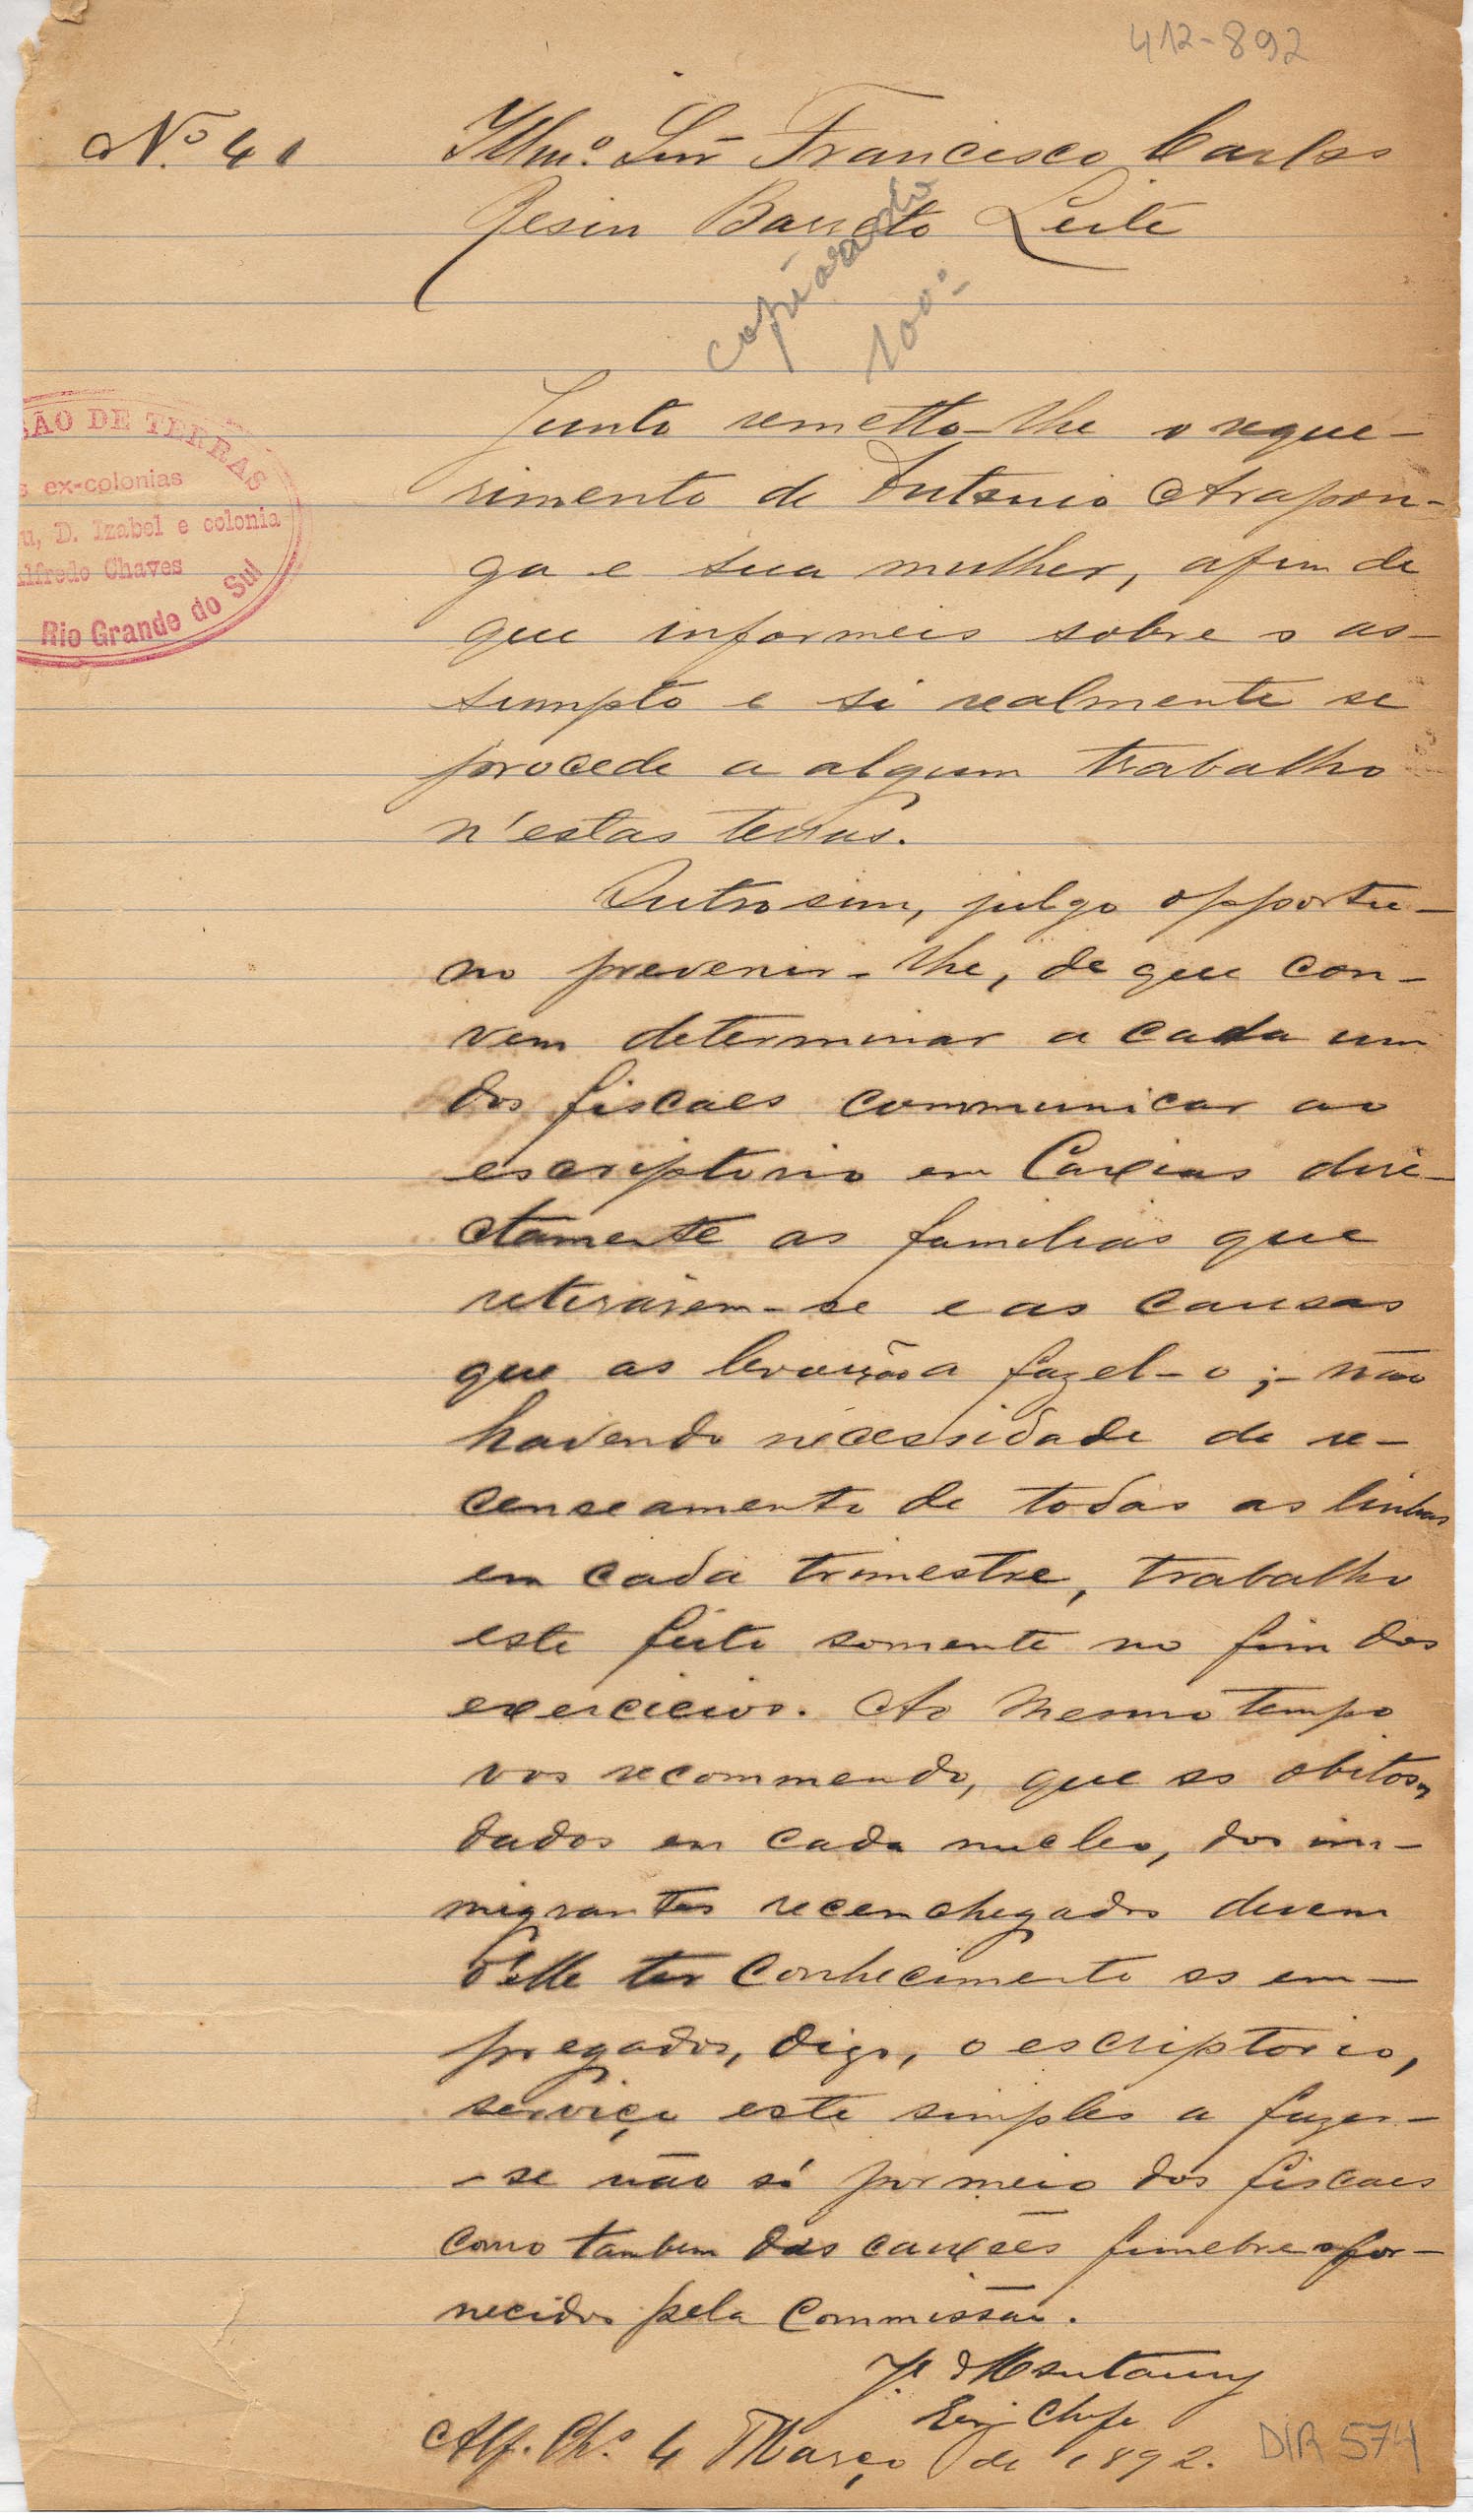 412-892
Nº 41
Illmº Snr Francisco Carlos
Resin Barreto Leite
copiarado
100º
SÃO DE TERRAS
s ex-colonias
u, D. Izabel e colonia
Alfredo Chaves
Rio Grande do Sul
Junto remetto-lhe o reque-
rimento de Antonio Arapon-
ga e sua mulher, afim de
que informeis sobre o as-
sumpto e si realmente se
procede a algum trabalho
n'estas terras.
Outrosim, julgo opportu-
no prevenir-lhe, de que con-
vem determinar a cada um
dos fiscaes communicar ao
escriptorio em Caxias dire-
ctamente as familias que
retirárem-se e as causas
que as levarão a fazel-o; - não
havendo necessidade de re-
censeamento de todas as linhas
em cada trimestre, trabalho
este feito somente no fim dos
exercicios. Ao mesmo tempo
vos recommendo, que os obitos,
dados em cada nucleo, dos im-
migrantes recemchegados devem
d'elle ter conhecimento os em-
pregados, digo, o escriptorio,
serviço este simples a fazer-
-se não só por meio dos fiscaes
como tambem dos caixões funebres for-
necidos pela Commissão.
J. Montaury
Eng. Chefe
Alf. Chs. 4 Março de 1892.
DIR 574